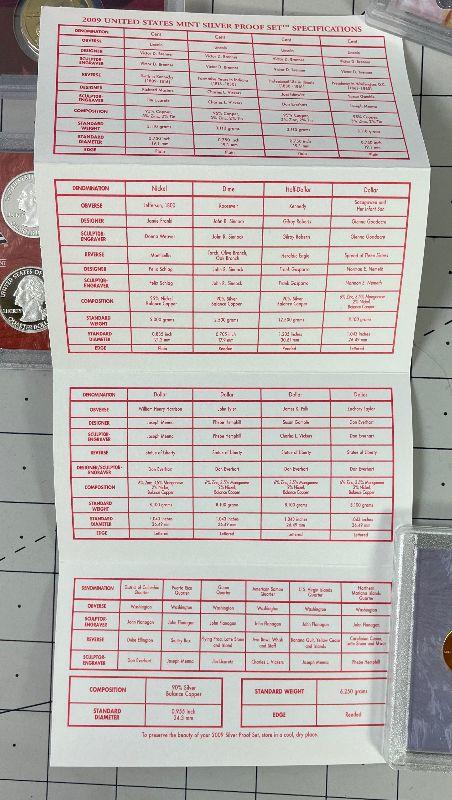 2009 UNITED STATES MINT SILVER PROOF SET™ SPECIFICATIONS
DENOMINATION Cent Cent Cent Cent
OBVERSE Lincoln Lincoln Lincoln Lincoln
DESIGNER Victor D. Brenner Victor D. Brenner Victor D. Brenner Victor D. Brenner
SCULPTOR-ENGRAVER Victor D. Brenner Victor D. Brenner Victor D. Brenner Victor D. Brenner
REVERSE
DESIGNER Richard Masters Charles L. Vickers Joel Iskowitz
SCULPTOR-ENGRAVER Charles L. Vickers Don Everhart Joseph Menna
COMPOSITION 95% Copper, 95% Copper, 95% Copper, 95% Copper,
STANDARD WEIGHT 3.110 grams 3.110 grams 3.110 grams 3.110 grams
STANDARD DIAMETER 0.750 inch 0.750 inch 0.750 inch 0.750 inch
EDGE Plain Plain Plain Plain
DENOMINATION Nickel Dime Half-Dollar Dollar
OBVERSE Jefferson, 1800 Roosevelt Kennedy Sacagawea and Her Infant Son
DESIGNER Jamie Franki John R. Sinnock Gilroy Roberts Glenna Goodacre
SCULPTOR-ENGRAVER Donna Weaver John R. Sinnock Gilroy Roberts Glenna Goodacre
REVERSE Monticello Torch, Olive Branch, Oak Branch Heraldic Eagle Spread of Three Sisters
DESIGNER Felix Schlag John R. Sinnock Frank Gasparro Norman E. Nemeth
SCULPTOR-ENGRAVER Felix Schlag John R. Sinnock Frank Gasparro Norman E. Nemeth
COMPOSITION 25% Nickel Balance Copper 90% Silver Balance Copper 90% Silver Balance Copper
STANDARD WEIGHT 5.000 grams 2.500 grams 12.500 grams 8.100 grams
STANDARD DIAMETER 0.835 inch 21.2 mm 0.705 inch 17.9 mm 1.205 inches 30.61 mm 1.043 inches 26.49 mm
EDGE Plain Reeded Reeded Lettered
DENOMINATION Dollar Dollar Dollar Dollar
OBVERSE William Henry Harrison John Tyler James K. Polk Zachary Taylor
DESIGNER Joseph Menna Phebe Hemphill Susan Gamble Don Everhart
SCULPTOR-ENGRAVER Joseph Menna Phebe Hemphill Charles L. Vickers Don Everhart
REVERSE Statue of Liberty Statue of Liberty Statue of Liberty Statue of Liberty
DESIGNER/SCULPTOR-ENGRAVER Don Everhart Don Everhart Don Everhart Don Everhart
COMPOSITION 6% Zinc, 3.5% Manganese 2% Nickel, Balance Copper 6% Zinc, 3.5% Manganese 2% Nickel, Balance Copper 6% Zinc, 3.5% Manganese 2% Nickel, Balance Copper 6% Zinc, 3.5% Manganese 2% Nickel, Balance Copper
STANDARD WEIGHT 8.100 grams 8.100 grams 8.100 grams 8.100 grams
STANDARD DIAMETER 1.043 inches 26.49 mm 1.043 inches 26.49 mm 1.043 inches 26.49 mm 1.043 inches 26.49 mm
EDGE Lettered Lettered Lettered Lettered
DENOMINATION District of Columbia Quarter Puerto Rico Quarter Guam Quarter American Samoa Quarter U.S. Virgin Islands Quarter Northern Mariana Islands Quarter
OBVERSE Washington Washington Washington Washington Washington Washington
SCULPTOR-ENGRAVER John Flanagan John Flanagan John Flanagan John Flanagan John Flanagan John Flanagan
REVERSE Duke Ellington Sentry Box Flying Proa, Latte Stone and Island Ava Bowl, Whisk and Staff
SCULPTOR-ENGRAVER Don Everhart Joseph Menna Jim Licaretz Charles L. Vickers Joseph Menna Phebe Hemphill
COMPOSITION 90% Silver Balance Copper STANDARD WEIGHT 6.250 grams
STANDARD DIAMETER 0.955 inch 24.3 mm EDGE Reeded
To preserve the beauty of your 2009 Silver Proof Set, store in a cool, dry place.